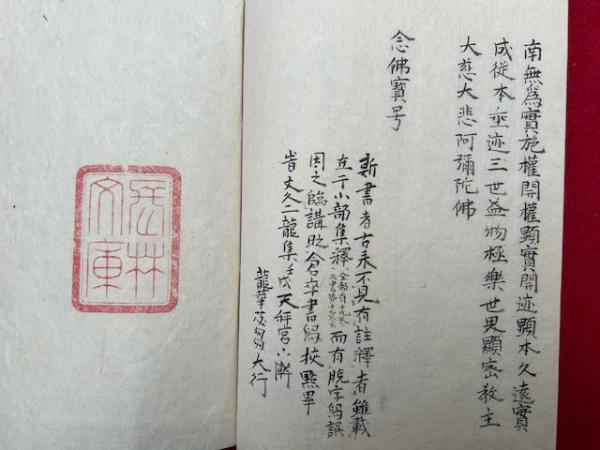 南無為實施權開權顯實開迹顯本久遠實
成従本垂迹三世益物極樂世界顯密教主
大慈大悲阿彌陀佛
念佛寶号
斯書者古来不見有註釋者雖載
在于小部集釋全部有十九卷而有脱字寫誤
因之臨講此令卒書寫挍點畢
旹文久二龍集壬戌天秤宮小
龍華大行
文庫